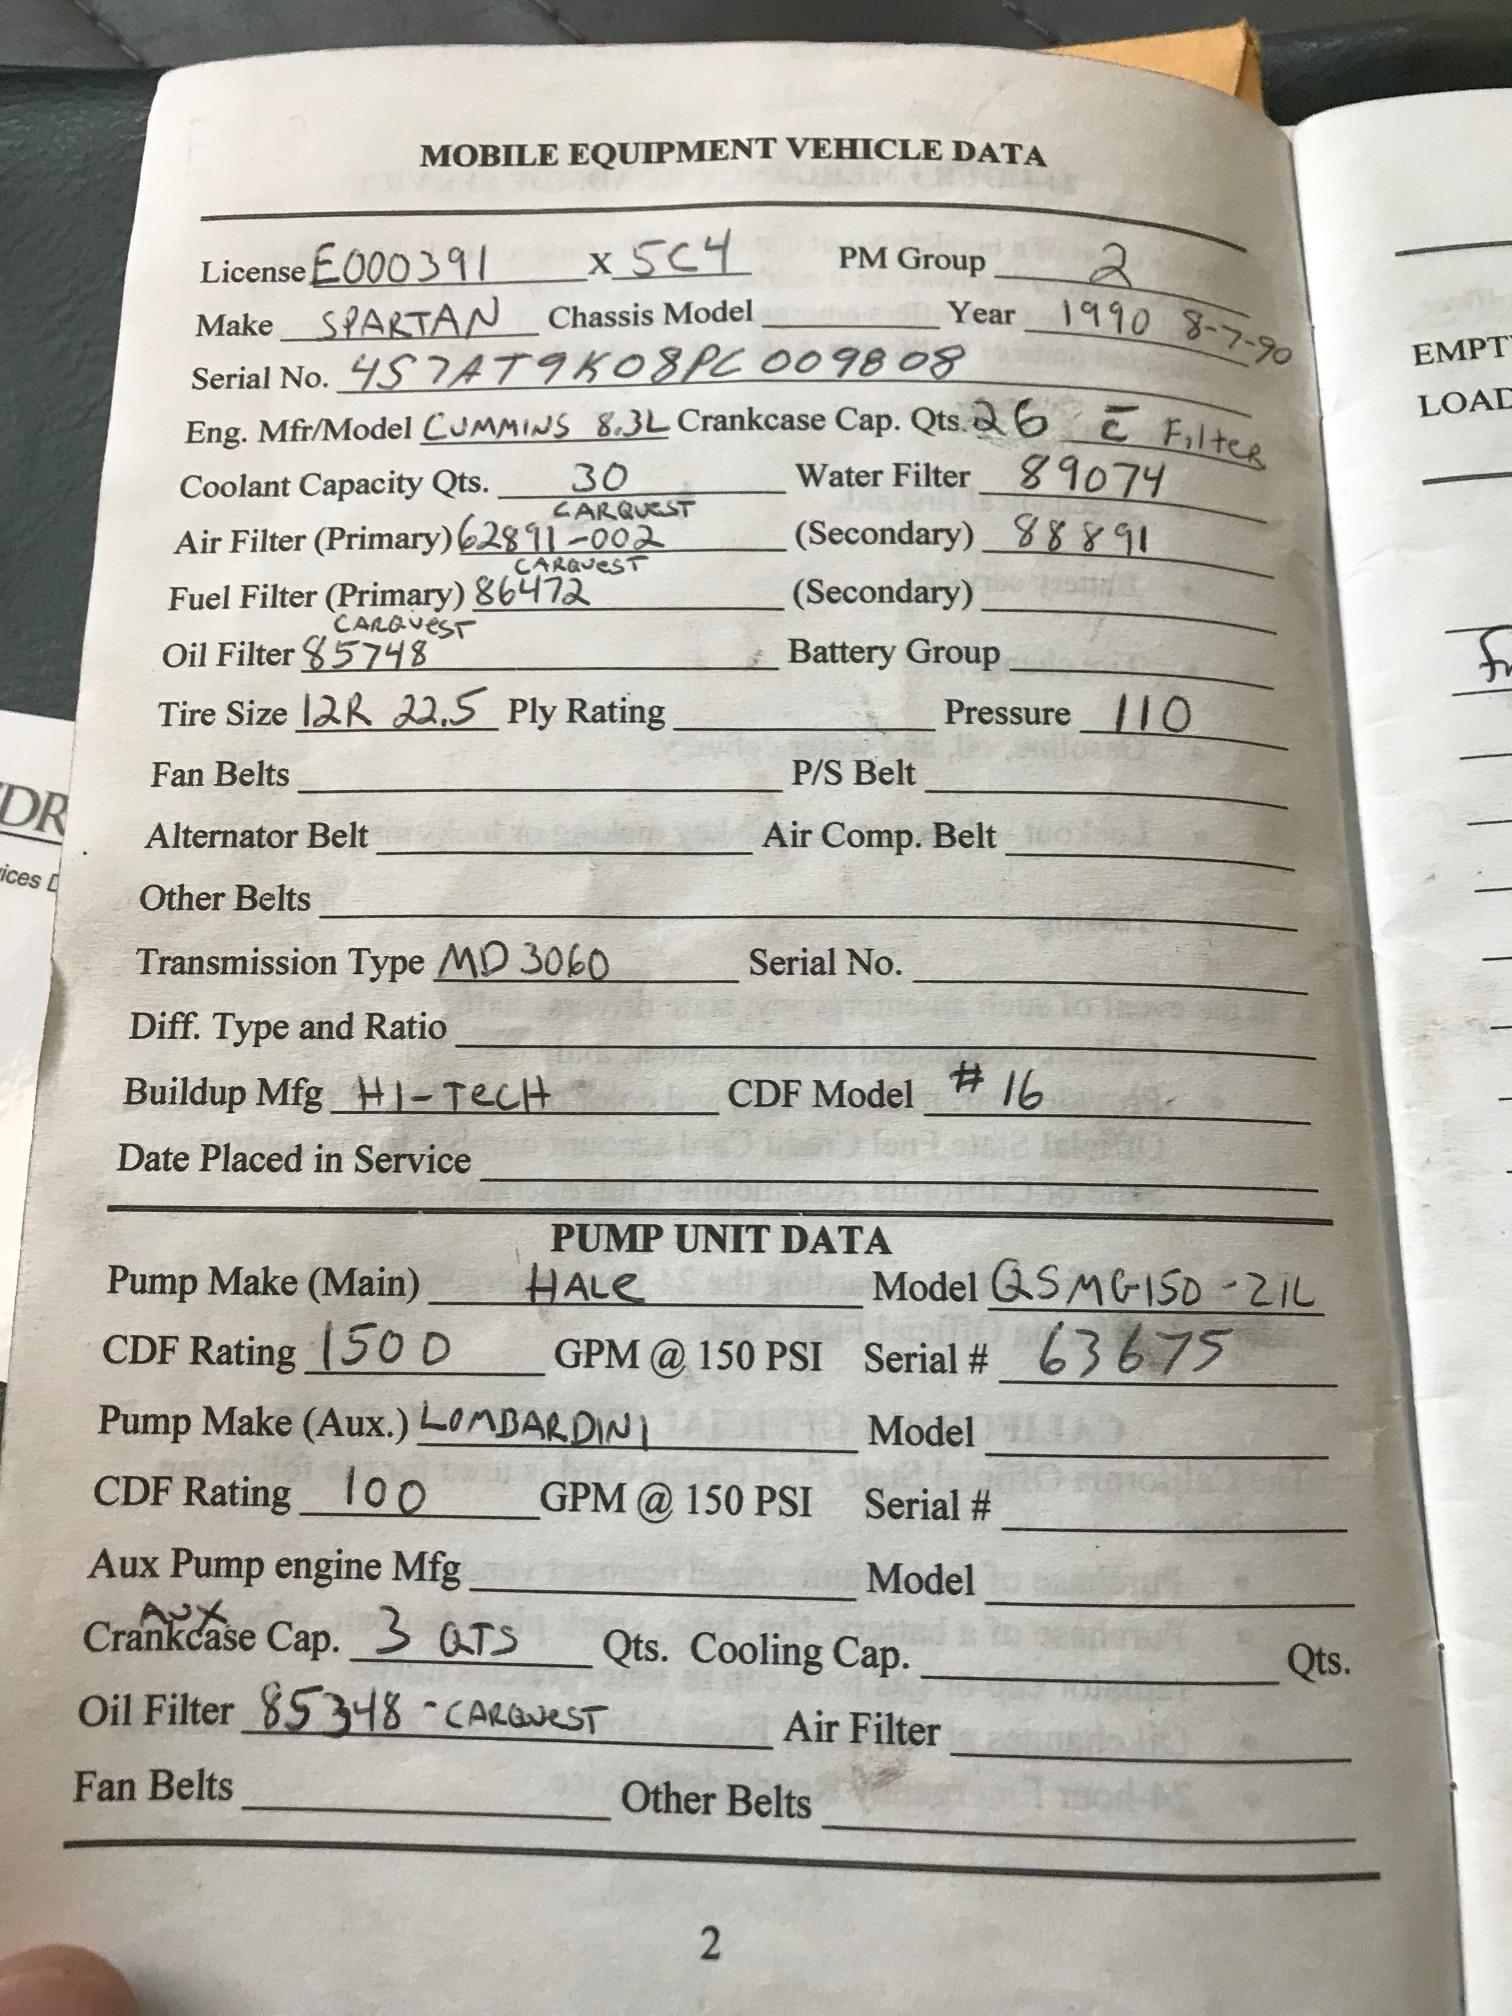 MOBILE EQUIPMENT VEHICLE DATA
License E000391 x 5C4 PM Group 2
Make SPARTAN Chassis Model Year 1990 8-7-90
Serial No. 4S7AT9K08PC009808
Eng. Mfr/Model CUMMINS 8.3L Crankcase Cap. Qts. 26 c̄ Filter
Coolant Capacity Qts. 30 Water Filter 89074
CARQUEST
Air Filter (Primary) 62891-002 (Secondary) 88891
CARQUEST
Fuel Filter (Primary) 86472 (Secondary)
CARQUEST
Oil Filter 85748 Battery Group
Tire Size 12R 22.5 Ply Rating Pressure 110
Fan Belts P/S Belt
Alternator Belt Air Comp. Belt
Other Belts
Transmission Type MD 3060 Serial No.
Diff. Type and Ratio
Buildup Mfg HI-TECH CDF Model #16
Date Placed in Service
PUMP UNIT DATA
Pump Make (Main) HALE Model QSMG150-21L
CDF Rating 1500 GPM @ 150 PSI Serial # 63675
Pump Make (Aux.) LOMBARDINI Model
CDF Rating 100 GPM @ 150 PSI Serial #
Aux Pump engine Mfg Model
AUX
Crankcase Cap. 3 QTS Qts. Cooling Cap. Qts.
Oil Filter 85348 - CARQUEST Air Filter
Fan Belts Other Belts
2
EMPT
LOAD
DR
ices D